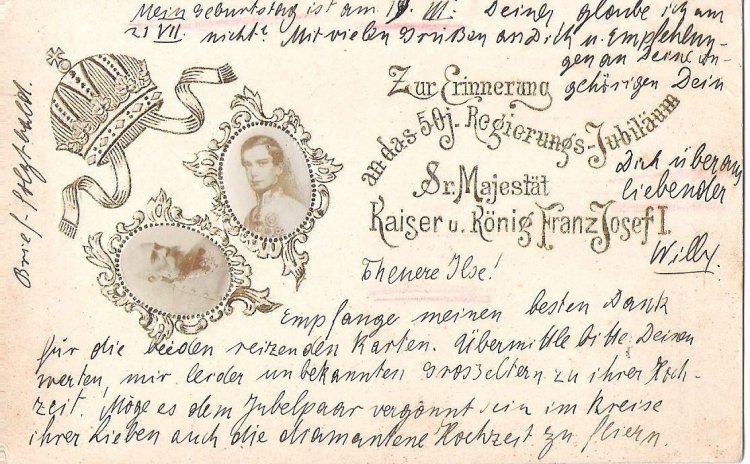 Zur Erinnerung
an das 50j. Regierungs-Jubiläum
Sr. Majestät
Kaiser u. König Franz Josef I.
Theuere Ilse!
Empfange meinen besten Dank
für die beiden reizenden Karten. Übermittle bitte Deinen
werten, mir leider unbekannten Grosseltern zu ihrer Hoch-
zeit. Möge es dem Jubelpaar vergönnt sein im Kreise
ihrer Lieben auch die diamantene Hochzeit zu feiern.
Mein Geburtstag ist am III. Deiner glaube ich am
21 VII. nicht? Mit vielen Grüßen an Dich u. Empfehlun-
gen an Deine An-
gehörigen Dein
Dich überaus
liebender
Willy.
Brief folgt bald.